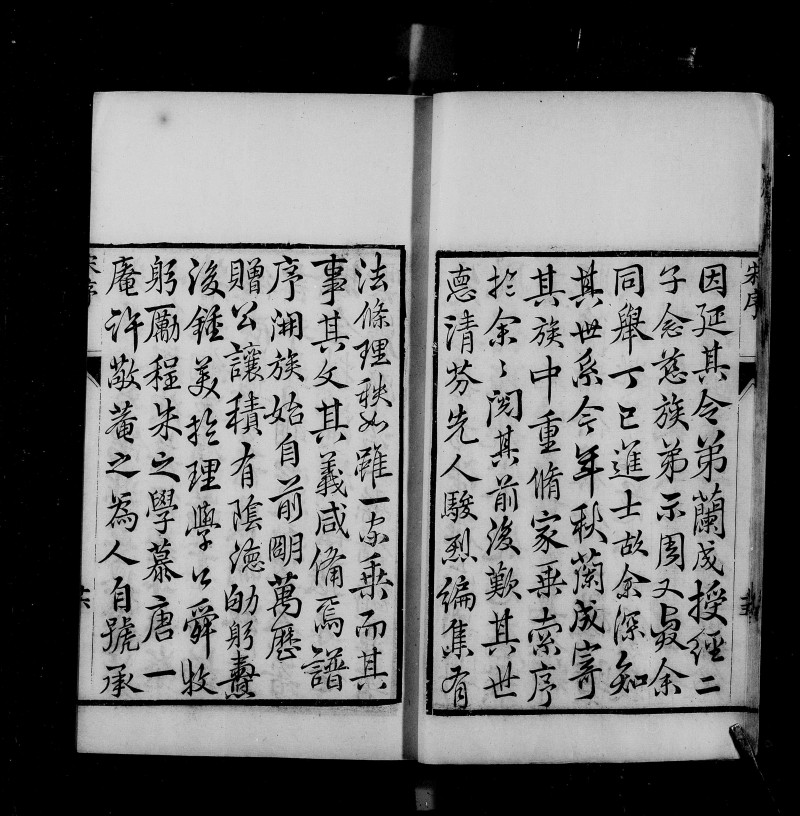 宋序
因延其令弟蘭成授經二
子念慈族弟示周又最余
同舉丁巳進士故余深知
其世系今年秋蘭成寄
其族中重脩家乘索序
扵余〻閱其前後歎其世
德清芬先人駿烈編集有
法條理秩如雖一家乘而其
事其文其義咸備焉譜
序湖族始自前明萬歷
贈公讓積有陰德幼躬
後鍾美扵理學公舜牧
躬勵程朱之學慕唐一
庵許敬菴之為人自號承
宋序